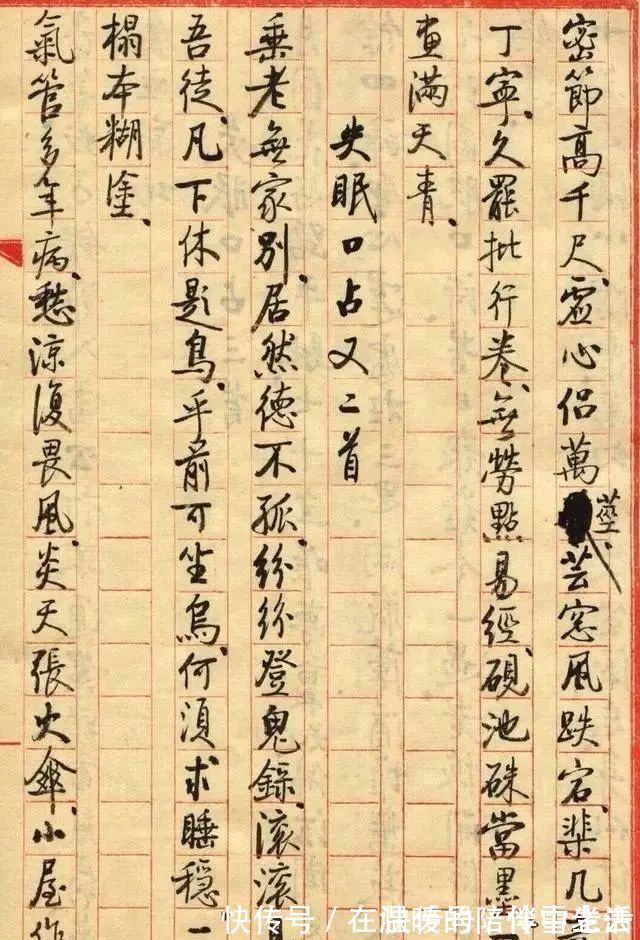 密節高千尺、虛心侶萬莖、芸窓風跌宕、棐几
丁寧、久罷批行卷、無勞點易經、硯池硃當墨
畫滿天青、
失眠口占又二首
垂老無家別、居然德不孤、紛紛登鬼錄、滾滾
吾徒、凡下休題鳥、乎前可坐烏、何須求睡穩、一
榻本糊塗、
氣管多年病、愁涼復畏風、炎天張火傘、小屋作
快传号 / 在